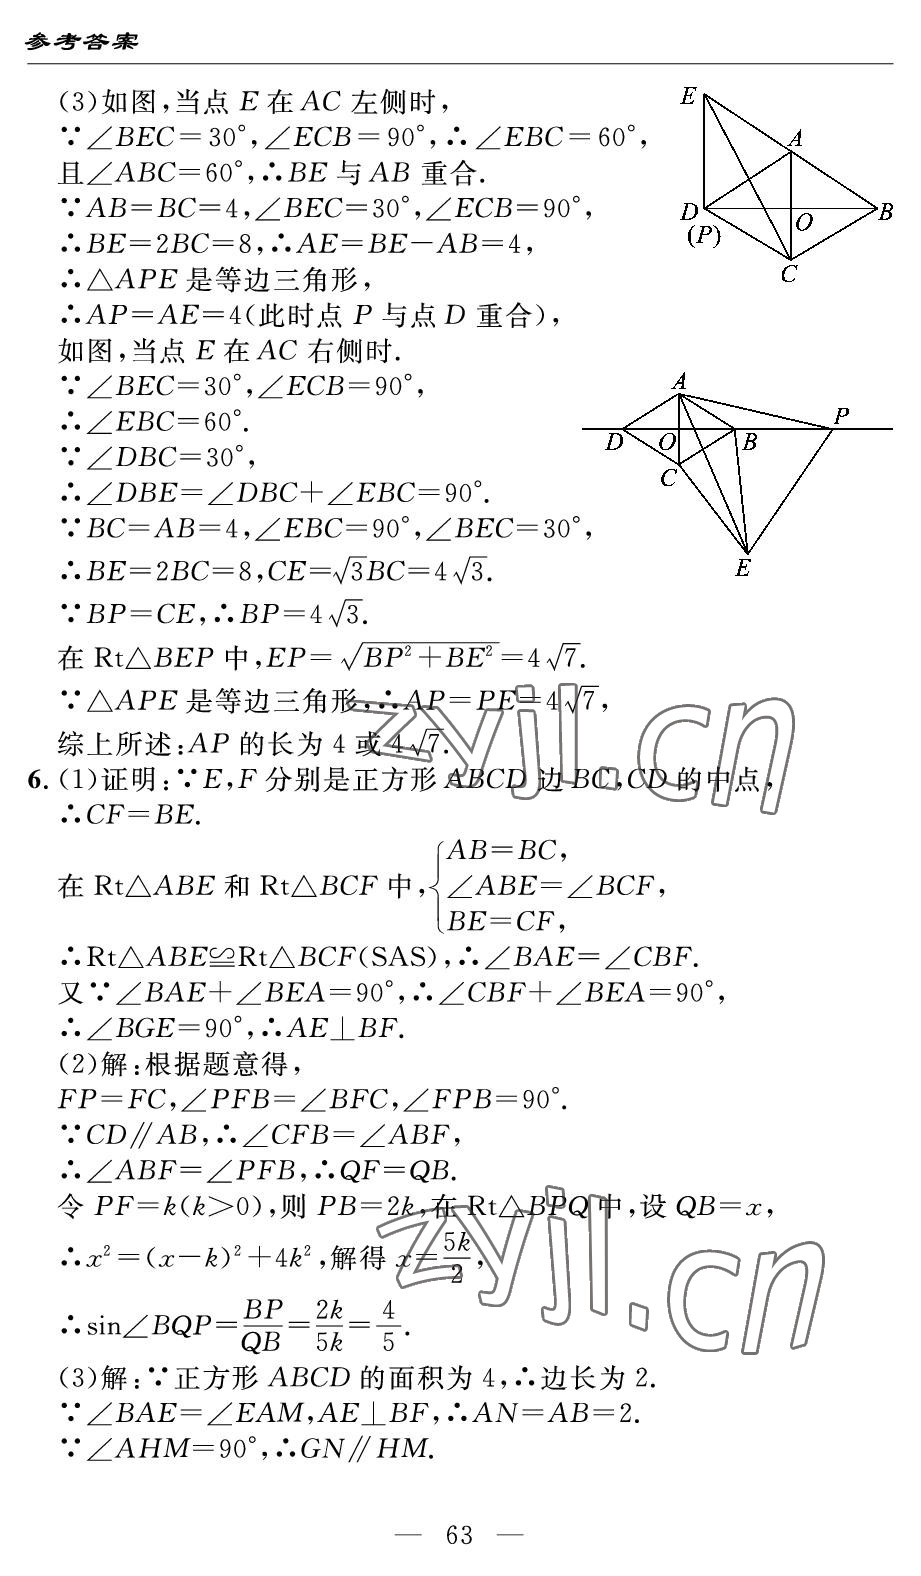 参考答案
(3)如图,当点 E 在 AC 左侧时,
∵∠BEC=30°,∠ECB=90°,∴∠EBC=60°,
且∠ABC=60°,∴BE 与 AB 重合.
∵AB=BC=4,∠BEC=30°,∠ECB=90°,
∴BE=2BC=8,∴AE=BE-AB=4,
∴△APE 是等边三角形,
∴AP=AE=4(此时点 P 与点 D 重合),
E
A
D
O
B
(P)
C
如图,当点 E 在 AC 右侧时.
∵∠BEC=30°,∠ECB=90°,
∴∠EBC=60°.
∵∠DBC=30°,
∴∠DBE=∠DBC+∠EBC=90°.
∵BC=AB=4,∠EBC=90°,∠BEC=30°,
∴BE=2BC=8,CE=√3BC=4√3.
∵BP=CE,∴BP=4√3.
A
P
D
O
B
C
E
在 Rt△BEP 中,EP=√(BP²+BE²)=4√7.
∵△APE 是等边三角形,∴AP=PE=4√7,
综上所述:AP 的长为 4 或 4√7.
6. (1)证明:∵E,F 分别是正方形 ABCD 边 BC,CD 的中点,
∴CF=BE.
在 Rt△ABE 和 Rt△BCF 中,{AB=BC,
∠ABE=∠BCF,
BE=CF,
∴Rt△ABE≌Rt△BCF(SAS),∴∠BAE=∠CBF.
又∵∠BAE+∠BEA=90°,∴∠CBF+∠BEA=90°,
∴∠BGE=90°,∴AE⊥BF.
(2)解:根据题意得,
FP=FC,∠PFB=∠BFC,∠FPB=90°.
∵CD∥AB,∴∠CFB=∠ABF,
∴∠ABF=∠PFB,∴QF=QB.
令 PF=k(k>0),则 PB=2k,在 Rt△BPQ 中,设 QB=x,
∴x²=(x-k)²+4k²,解得 x=5k/2,
∴sin∠BQP=BP/QB=2k/5k=4/5.
(3)解:∵正方形 ABCD 的面积为 4,∴边长为 2.
∵∠BAE=∠EAM,AE⊥BF,∴AN=AB=2.
∵∠AHM=90°,∴GN∥HM.
— 63 —
zyjl.cn
zyjl.cn